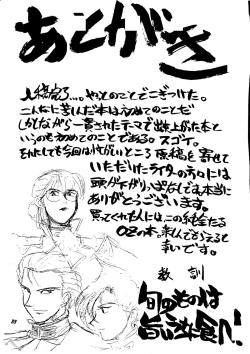 あとがき
入稿完了…。やっとのことでこぎつけた。
こんなに苦しんだ本は初めてのことだ
しかしながら一貫されたテーマで出来上がった本と
いうのも初めてのことである。スゴイ。
それにしても今回は忙がしいところ原稿を寄せて
いただいたライターの方々には
頭が下がりっぱなしで、本当に
ありがとうございます。
買ってくれた人には、この純全たる
OZの本、楽しんでもらえると
幸いです。
教訓
旬のものは
旨いうちに食え!